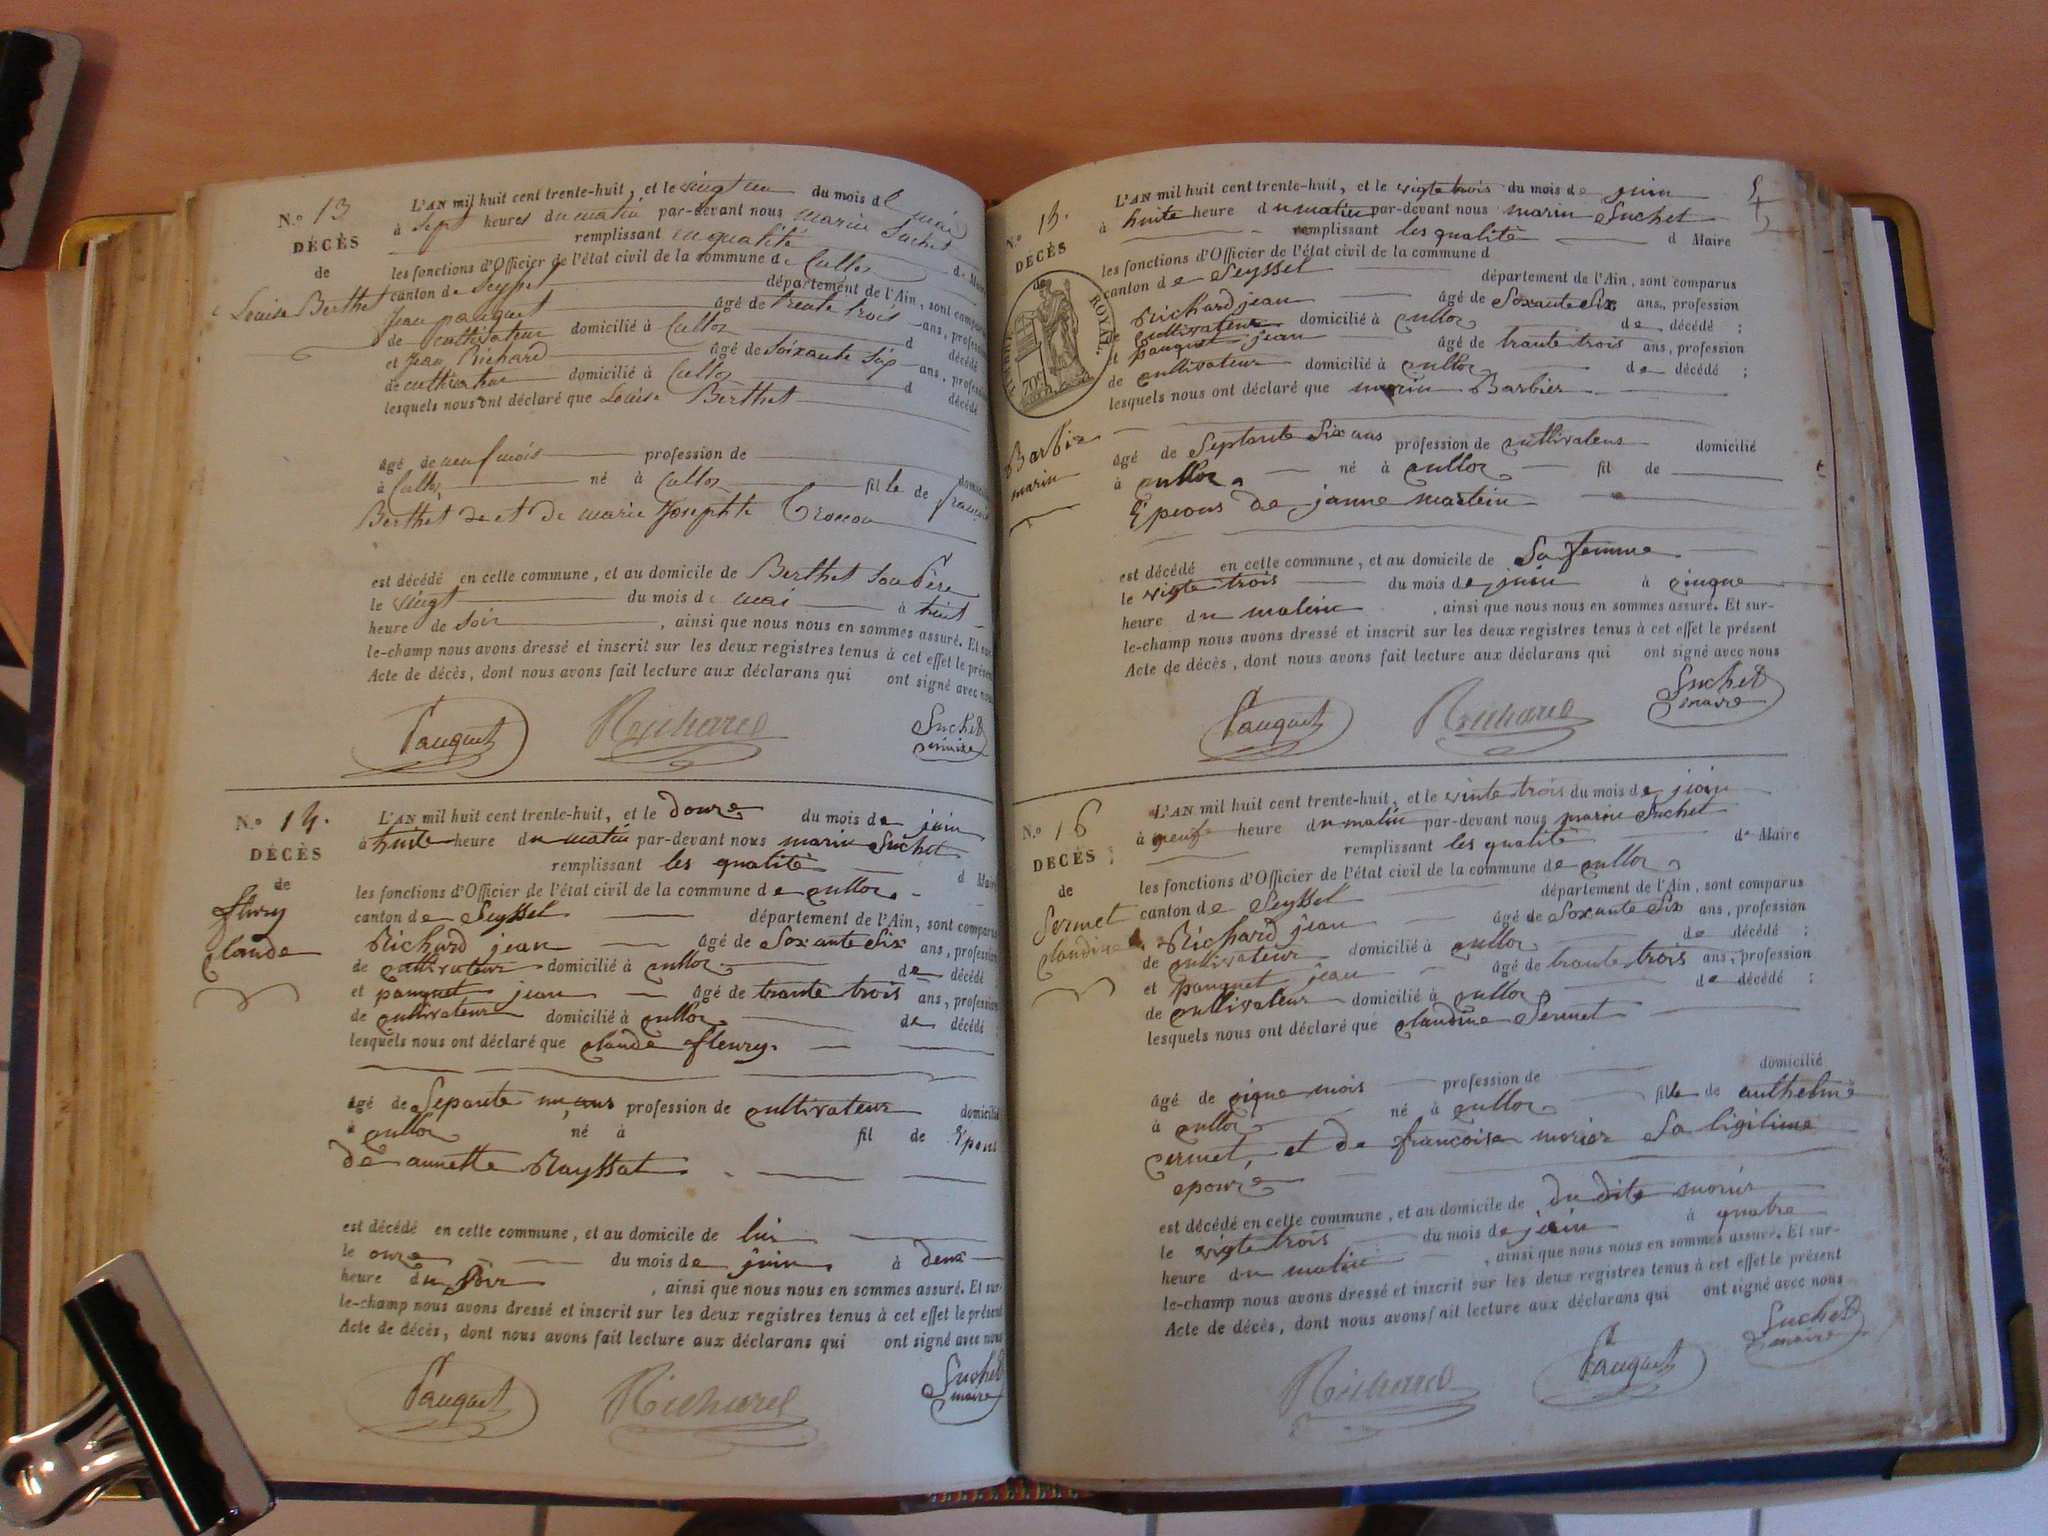 N.o 13
DÉCÈS
de
Louise Berthet
L'AN mil huit cent trente-huit, et le vingt un du mois de mai
à sept heures du matin par-devant nous marin Suchet
remplissant en qualité de Maire
les fonctions d'Officier de l'état civil de la commune de Culloz
canton de Seyssel département de l'Ain, sont comparus
Jean pauquet âgé de trente trois ans, profession
de Cultivateur domicilié à Culloz d décédé
et Jean Richard âgé de soixante six ans, profession
de cultivateur domicilié à Culloz d décédé
lesquels nous ont déclaré que Louise Berthet
âgé de neuf mois profession de domicilié
à Culloz né à Culloz fille de françois
Berthet de et de marie Josephte
est décédé en cette commune, et au domicile de Berthet son Père
le vingt du mois de mai à huit
heure de soir , ainsi que nous nous en sommes assuré. Et sur-
le-champ nous avons dressé et inscrit sur les deux registres tenus à cet effet le présent
Acte de décès, dont nous avons fait lecture aux déclarans qui ont signé avec nous
Pauquet Richard Suchet
maire
N.o 14.
DÉCÈS
de
flury
Claude
L'AN mil huit cent trente-huit, et le douze du mois de juin
à huite heure du matin par-devant nous marin Suchet
remplissant les qualité d Maire
les fonctions d'Officier de l'état civil de la commune de culloz
canton de Seyssel département de l'Ain, sont comparus
Richard jean âgé de Soxante Six ans, profession
de cultivateur domicilié à culloz de décédé ;
et pauquet jean âgé de trante trois ans, profession
de cultivateur domicilié à culloz de décédé ;
lesquels nous ont déclaré que claude fleury.
âgé de Sepante profession de cultivateur domicilié
à culloz né à fil de Epous
de annette Rayssat
est décédé en cette commune, et au domicile de lui
le onze du mois de juin à deux
heure du Soir , ainsi que nous nous en sommes assuré. Et sur-
le-champ nous avons dressé et inscrit sur les deux registres tenus à cet effet le présent
Acte de décès, dont nous avons fait lecture aux déclarans qui ont signé avec nous
Pauquet Richard Suchet
maire
N.o 15.
DÉCÈS
de
TIMBRE ROYAL.
70c
Barbie
marin
L'AN mil huit cent trente-huit, et le vigte trois du mois de juin
à huite heure du matin par-devant nous marin Suchet
remplissant les qualité d Maire
les fonctions d'Officier de l'état civil de la commune d
canton de Seyssel département de l'Ain, sont comparus
Richard jean âgé de Soxante Six ans, profession
de cultivateur domicilié à culloz de décédé ;
et pauquet jean âgé de trante trois ans, profession
de cultivateur domicilié à culloz de décédé ;
lesquels nous ont déclaré que marin Barbier
âgé de Septante Six ans profession de cultivateur domicilié
à culloz né à culloz fil de
Epious de janne martin
est décédé en cette commune, et au domicile de Sa femme
le vigte trois du mois de juin à cinque
heure du matin , ainsi que nous nous en sommes assuré. Et sur-
le-champ nous avons dressé et inscrit sur les deux registres tenus à cet effet le présent
Acte de décès, dont nous avons fait lecture aux déclarans qui ont signé avec nous
Pauquet Richard Suchet
maire
N.o 16
DÉCÈS
de
Sermet
claudine
L'AN mil huit cent trente-huit, et le vinte trois du mois de juin
à neufe heure du matin par-devant nous marin Suchet
remplissant les qualité de Maire
les fonctions d'Officier de l'état civil de la commune de culloz
canton de Seyssel département de l'Ain, sont comparus
Richard jean âgé de Soxante Six ans, profession
de cultivateur domicilié à culloz de décédé ;
et pauquet jean âgé de trante trois ans, profession
de cultivateur domicilié à culloz de décédé ;
lesquels nous ont déclaré que claudine Sermet
âgé de cique mois profession de domicilié
à culloz né à culloz fille de anthelme
cermet, et de francoise morior Sa ligitime
epouse
est décédé en cette commune, et au domicile de du dite
le vigte trois du mois de juin à quatre
heure du matin , ainsi que nous nous en sommes assuré. Et sur-
le-champ nous avons dressé et inscrit sur les deux registres tenus à cet effet le présent
Acte de décès, dont nous avons fait lecture aux déclarans qui ont signé avec nous
Richard Pauquet Suchet
maire